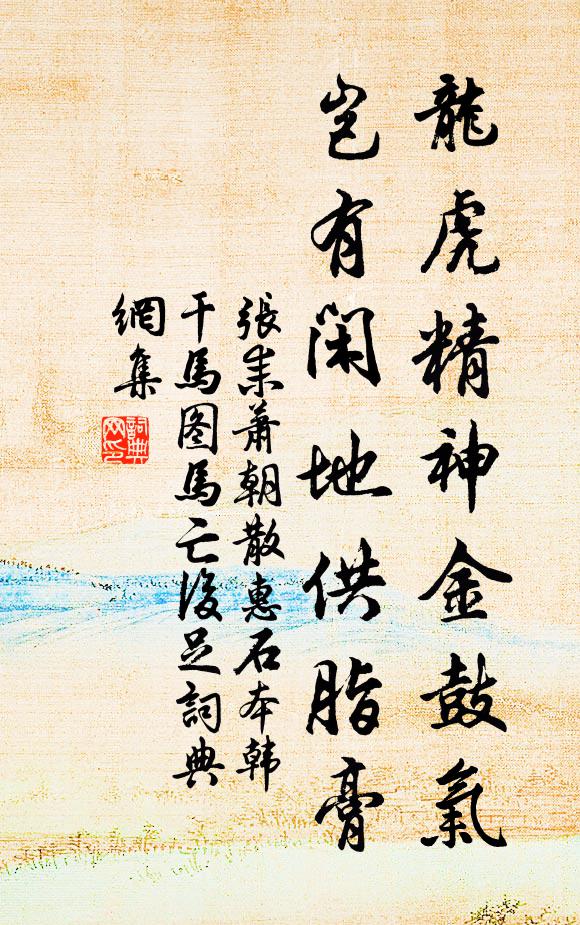 龍虎精神金鼓氣
豈有閑地供脂膏
張耒蕭朝散惠石本韩
干馬图馬亡後足詞典
網集
詞典網印